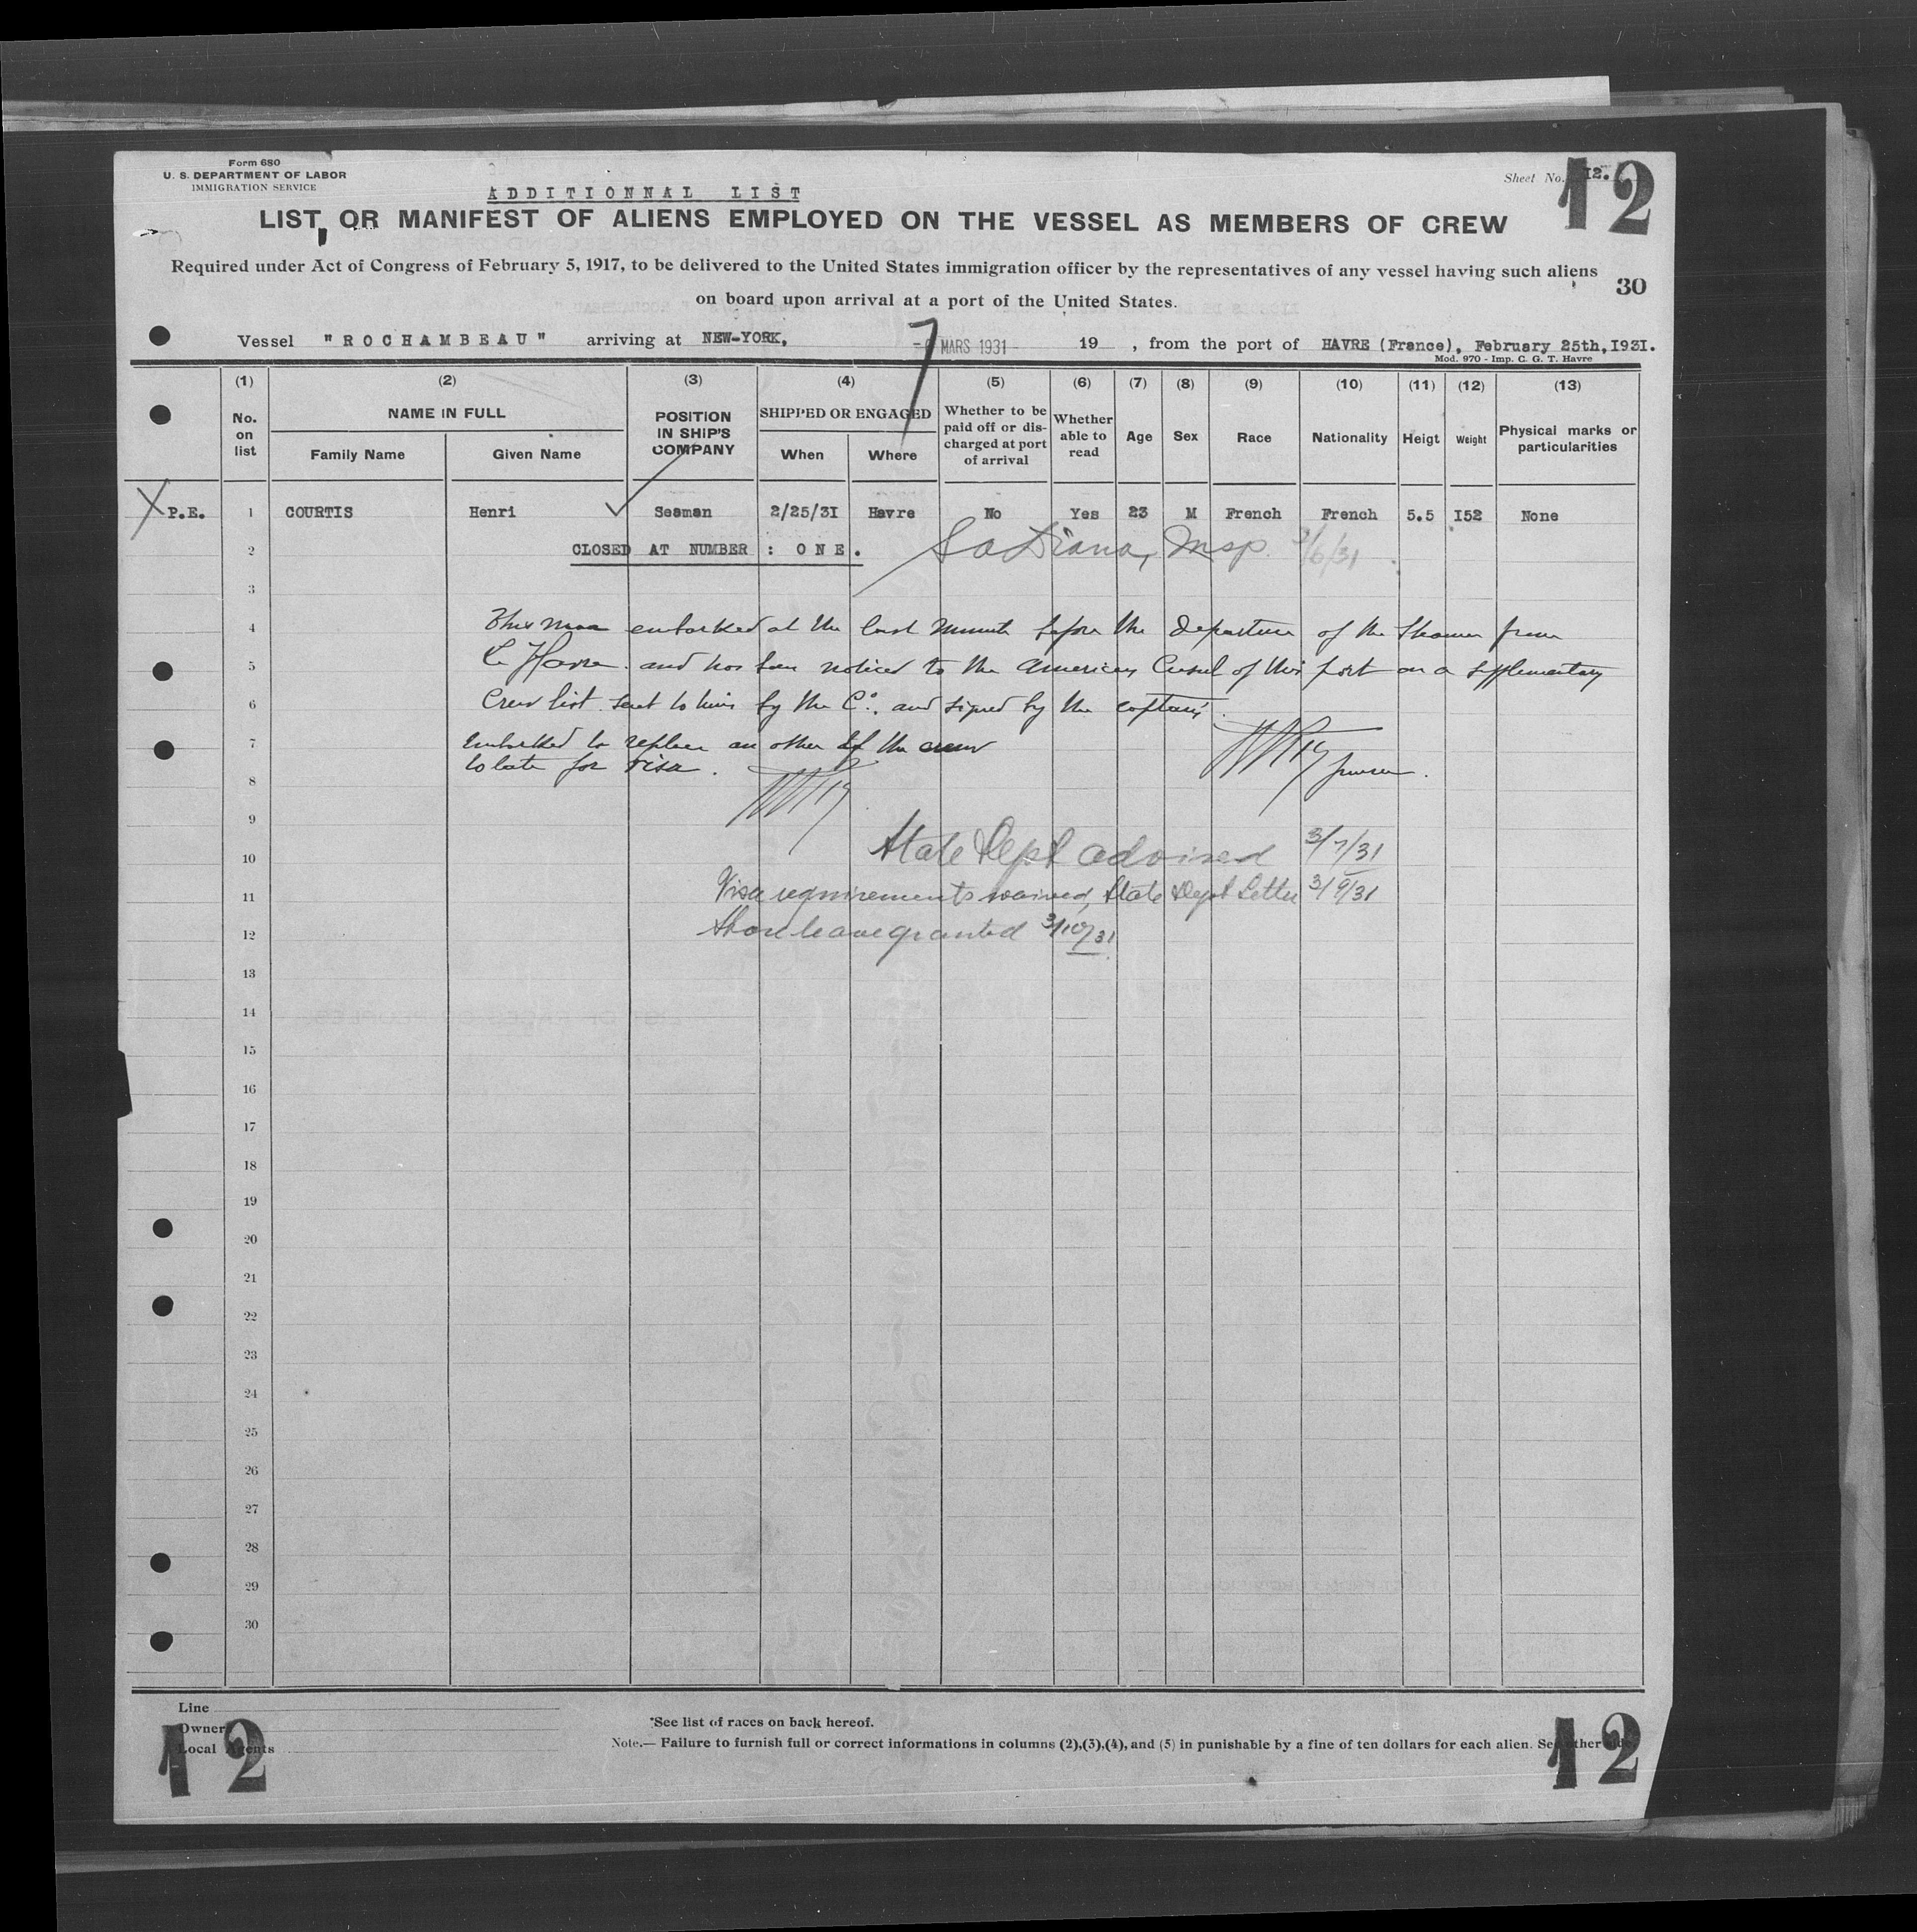 Form 680
U. S. DEPARTMENT OF LABOR
IMMIGRATION SERVICE
Sheet No. 12.
12
ADDITIONNAL LIST
LIST OR MANIFEST OF ALIENS EMPLOYED ON THE VESSEL AS MEMBERS OF CREW
Required under Act of Congress of February 5, 1917, to be delivered to the United States immigration officer by the representatives of any vessel having such aliens
on board upon arrival at a port of the United States.
30
Vessel "ROCHAMBEAU" arriving at NEW-YORK, 7 MARS 1931 19 , from the port of HAVRE (France), February 25th, 1931.
Mod. 970 - Imp. C. G. T. Havre
(1) (2) (3) (4) (5) (6) (7) (8) (9) (10) (11) (12) (13)
No. on list NAME IN FULL Family Name Given Name POSITION IN SHIP'S COMPANY SHIPPED OR ENGAGED When Where Whether to be paid off or discharged at port of arrival Whether able to read Age Sex Race Nationality Heigt Weight Physical marks or particularities
X P.E. 1 COURTIS Henri Seaman 2/25/31 Havre No Yes 23 M French French 5.5 152 None
2 CLOSED AT NUMBER : ONE. Insp. 3/6/31
3
4 This man embarked at the last minute before the departure of the steamer from
5 Le Havre and has been noticed to the American Consul of this port on a supplementary
6 Crew list sent to him by the Co. and signed by the captain.
7 Embarked to replace an other of the crew
to late for visa.
8
9
10 State Dept advised 3/7/31
11 Visa requirements waived, State Dept Letter 3/9/31
12 Shore leave granted 3/10/31
13
14
15
16
17
18
19
20
21
22
23
24
25
26
27
28
29
30
Line
Owner
Local Agents
*See list of races on back hereof.
Note.— Failure to furnish full or correct informations in columns (2),(3),(4), and (5) in punishable by a fine of ten dollars for each alien. See other side
12
12